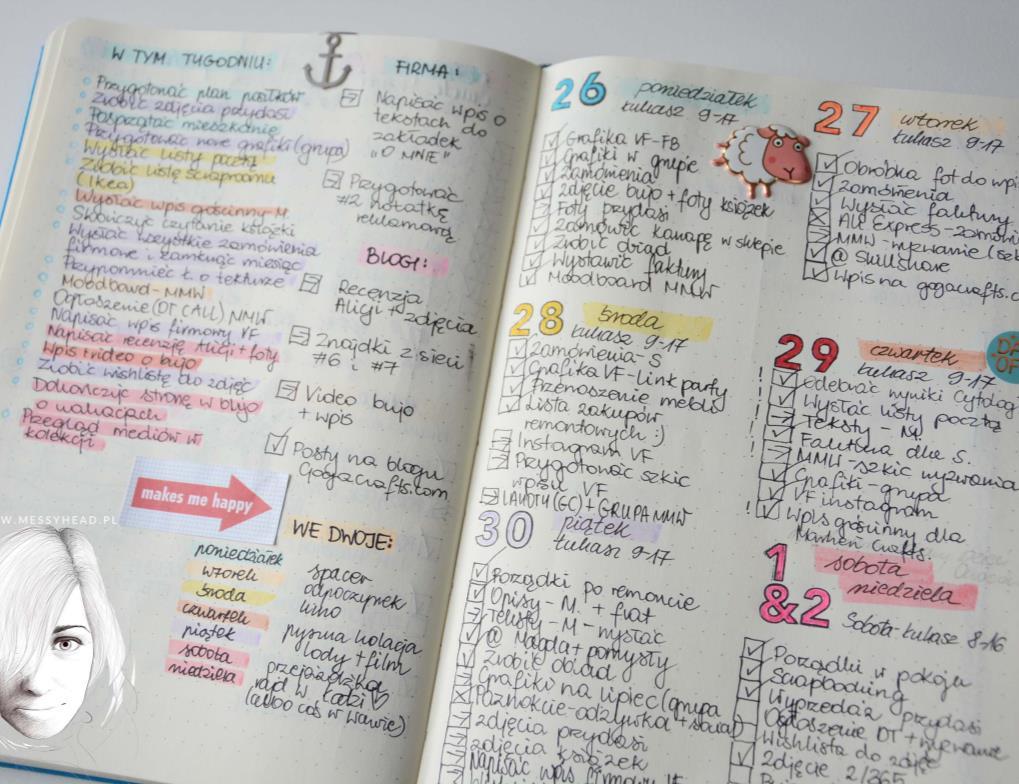 W TYM TYGODNIU:
Przygotować plan posiłków
Zrobić zdjęcia przydasi
Posprzątać mieszkanie
Przygotować nowe grafiki (grupa)
Wysłać listy pocztą
Zrobić listę scraproomu
(Ikea)
Wysłać wpis gościnny M.
Skończyć czytanie książki
Wysłać wszystkie zamówienia
firmowe i zamknąć miesiąc
Przypomnieć Ł o tekturze
Moodboard - MMW
Ogłoszenie (DT CALL) MMW
Napisać wpis firmowy VF
Napisać recenzję Alicji + foty
Wpis i video o bujo
Zrobić wishlistę do zdjęć
Dokończyć stronę w bujo
o wakacjach
Przegląd mediów w
kolekcji
makes me happy
W.MESSYHEAD.PL
FIRMA:
Napisać wpis o
tekstach do
zakładek
"O MNIE"
Przygotować
#2 notatkę
reklamową
BLOGI:
Recenzja
Alicji + zdjęcia
Znajdki z sieci
#6 i #7
Video bujo
+ wpis
Posty na blogu
Gogacrafts.com
WE DWOJE:
poniedziałek spacer
wtorek odpoczynek
środa wino
czwartek pyszna kolacja
piątek lody + film
sobota przejażdżka
niedziela rajd w Łodzi ♡
(albo coś w Wawie)
26 poniedziałek
Łukasz 9-17
Grafika VF-FB
Grafiki w grupie
Zamówienia
Zdjęcie bujo + foty książek
Foty przydasi
Zamówić kanapę w sklepie
Zrobić obiad
Wystawić faktury
Moodboard MMW
28 środa
Łukasz 9-17
Zamówienia - S
Grafika VF - link party
Przenoszenie mebli
Lista zakupów
remontowych :)
Instagram VF
Przygotować szkic
wpisu VF
LAYOUT (GC) + GRUPA MMW
30 piątek
Łukasz 9-17
Porządki po remoncie
Opisy - M. + fiat
Teksty - M - wysłać
@ Magda + pomysły
Zrobić obiad
Grafiki na lipiec (grupa
Paznokcie - odżywka +
zdjęcia przydasi
zdjęcia książek
Napisać wpis firmowy VF
27 wtorek
Łukasz 9-17
Obróbka fot do wpi
Zamówienia
Wysłać faktury
Ali Express - zamówi
MMW - wyzwanie (sz
@ Skillshare
Wpis na gogacrafts.c
29 czwartek
Łukasz 9-17
Odebrać wyniki cytolog
Wysłać listy pocztą
Teksty - M.
Faktura dla S.
MMW - szkic wyzwania
Grafiki - grupa
VF instagram
Wpis gościnny dla
Marheri Crafts.
1 sobota
&2 niedziela
Sobota - Łukasz 8-16
Porządki w pokoju
Scrapbooking
Wyprzedaż przydasi
Ogłoszenie DT + wyzwanie
Wishlista do zdjęć
zdjęcie 2/365